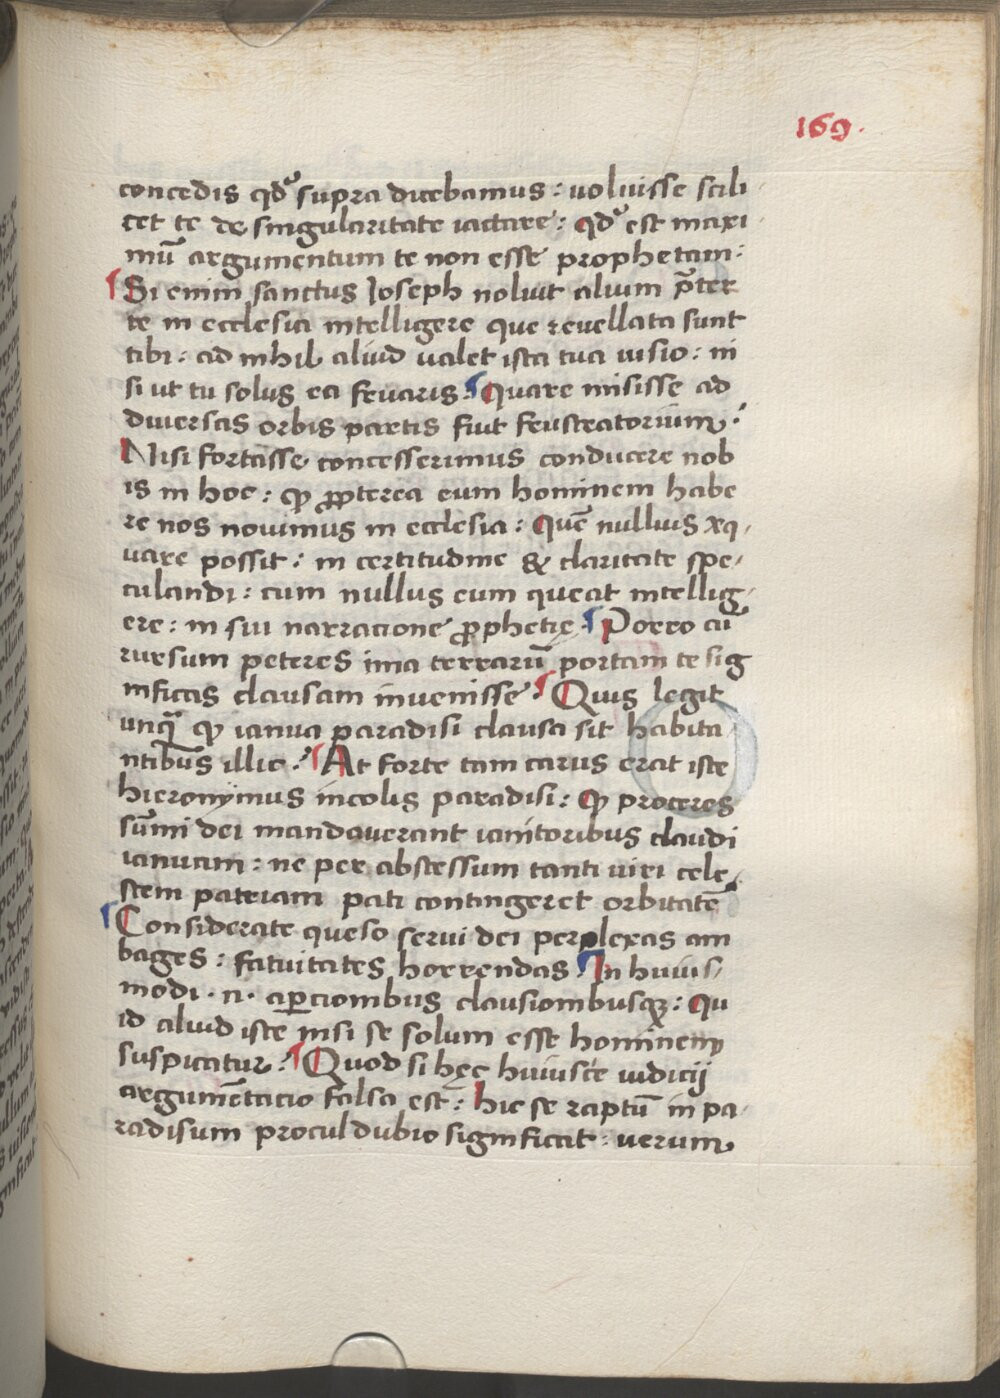 169.
concedis qdͦ supra dicebamus : uoluisse scili
cet te de singularitate iactare : qdͦ est maxi
mū argumentum te non esse prophetam :
¶ Si enim sanctus Joseph noluit alium p̄ter
te in ecclesia intelligere que reuellata sunt
tibi : ad nihil aliud ualet ista tua uisio : ni
si ut tu solus ea fruaris. ¶ Quare misisse ad
diuersas orbis partis fiut frustratorium.
Nisi fortasse concesserimus conducere nob
is in hoc : ꝙ ꝓpterea eum hominem habe
re nos nouimus in ecclesia : Quē nullius
uare possit : in certitudine & claritate spe
culandi : cum nullus eum queat intellig
ere : in sui narracione ꝓphetie. ¶ Porro cū
rursum peteres ima terrarū portam te sig
nificas clausam inuenisse. ¶ Quis legit
unꝗ̄ ꝙ ianua paradisi clausa sit habita
ntibus illic. ¶ At forte tam carus erat iste
hieronymus incolis paradisi : ꝙ proceres
sūmi dei mandauerant ianitoribus claudi
ianuam : ne per abscessum tanti uiri cele
stem patriam pati contingeret orbitatē
¶ Considerate queso serui dei perplexas am
bages : fatuitates horrendas. ¶ In huius
modi . n . aꝑcionibus clausionibusqꝫ : Qu
id aliud iste nisi se solum esse hominem
suspicatur. ¶ Quod si hęc huiusce iudicij
argumētacio falsa est : hic se raptū in pa
radisum procul dubio significat : uerum